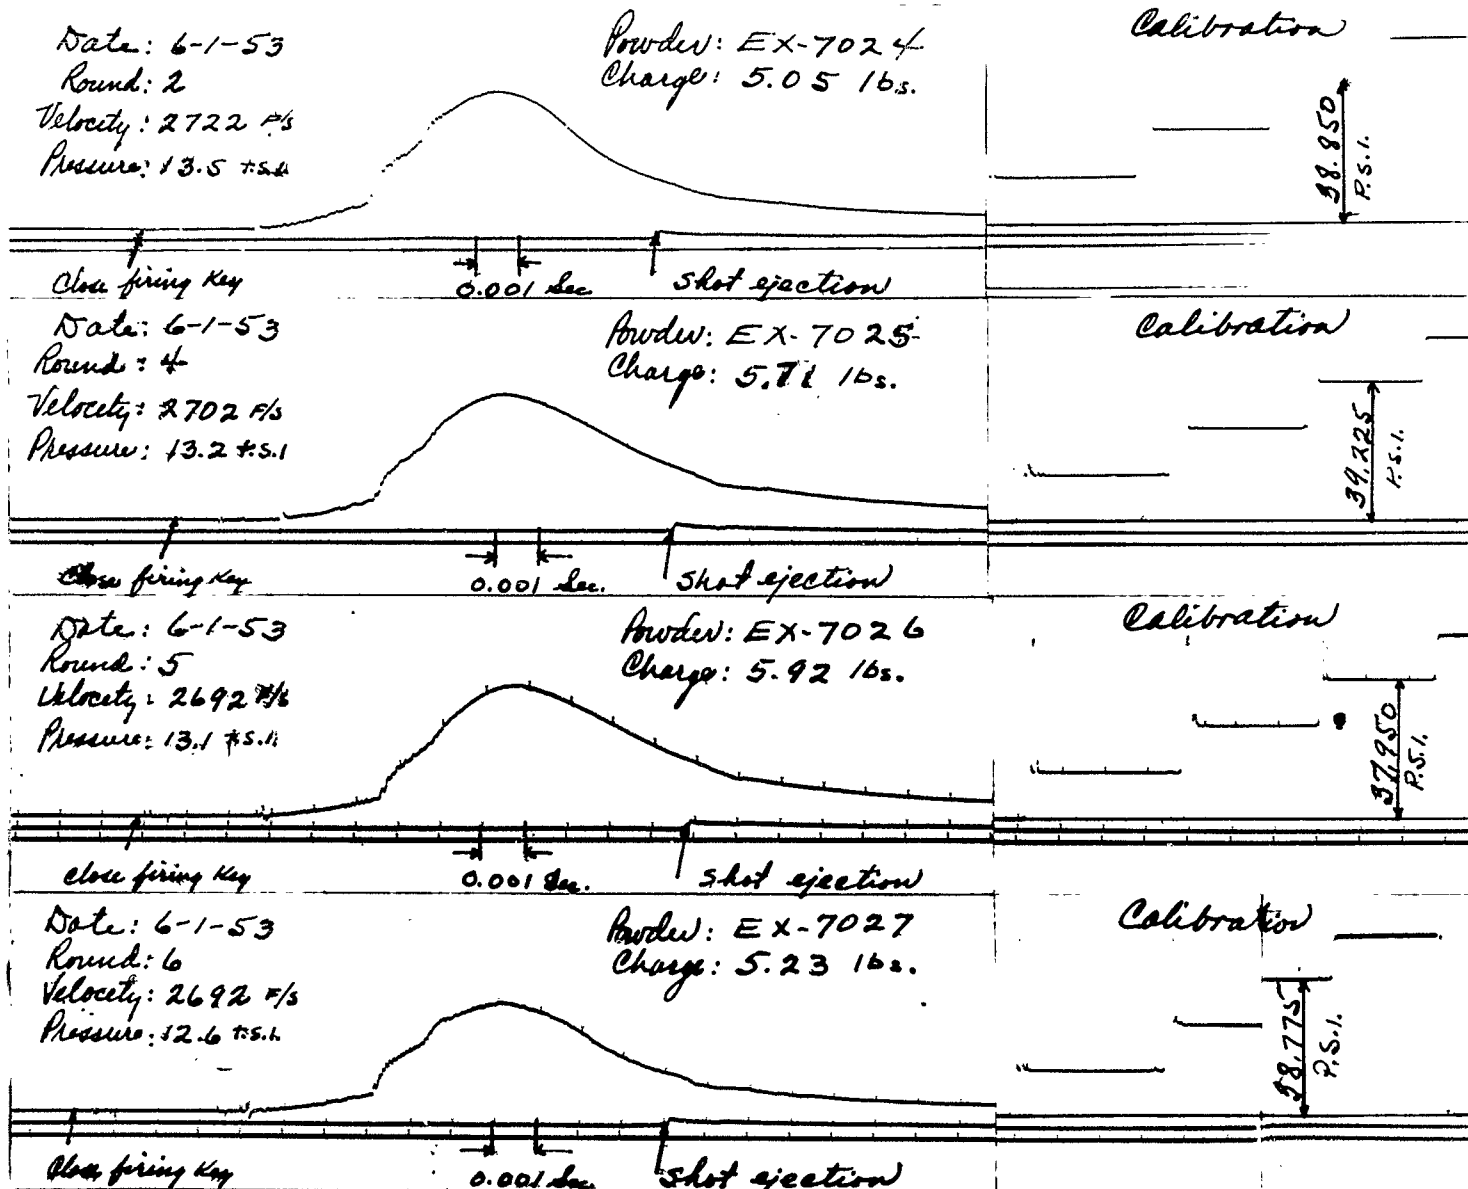 Date: 6-1-53
Round: 2
Velocity: 2722 F/s
Pressure: 13.5 t.s.i.
Powder: EX-7024
Charge: 5.05 lbs.
Calibration
38.850
P.S.I.
Close firing Key
0.001 Sec.
Shot ejection
Date: 6-1-53
Round: 4
Velocity: 2702 F/s
Pressure: 13.2 t.s.i
Powder: EX-7025
Charge: 5.71 lbs.
Calibration
39,225
P.S.I.
Close firing Key
0.001 Sec.
Shot ejection
Date: 6-1-53
Round: 5
Velocity: 2692 F/s
Pressure: 13.1 t.s.i.
Powder: EX-7026
Charge: 5.92 lbs.
Calibration
37,950
P.S.I.
Close firing Key
0.001 Sec.
Shot ejection
Date: 6-1-53
Round: 6
Velocity: 2692 F/s
Pressure: 12.6 t.s.i.
Powder: EX-7027
Charge: 5.23 lbs.
Calibration
38,775
P.S.I.
Close firing Key
0.001 Sec.
Shot ejection